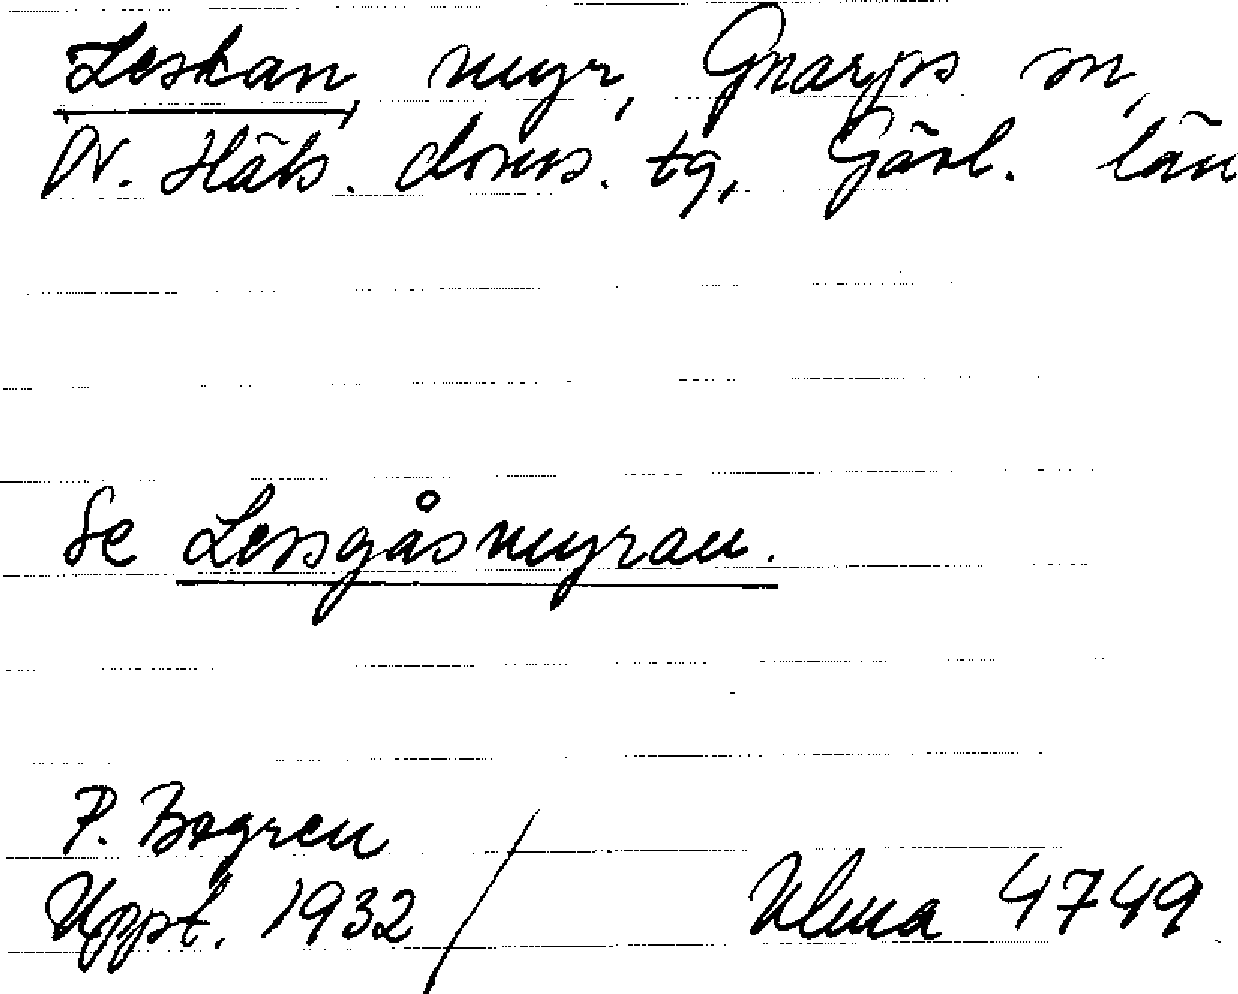 Leskan, myr, Gnarps sn,
N. Häls. doms. tg, Gävl. län
Se Lessgåsmyran.
P. Bogren
Uppt. 1932 /
Ulma 4749